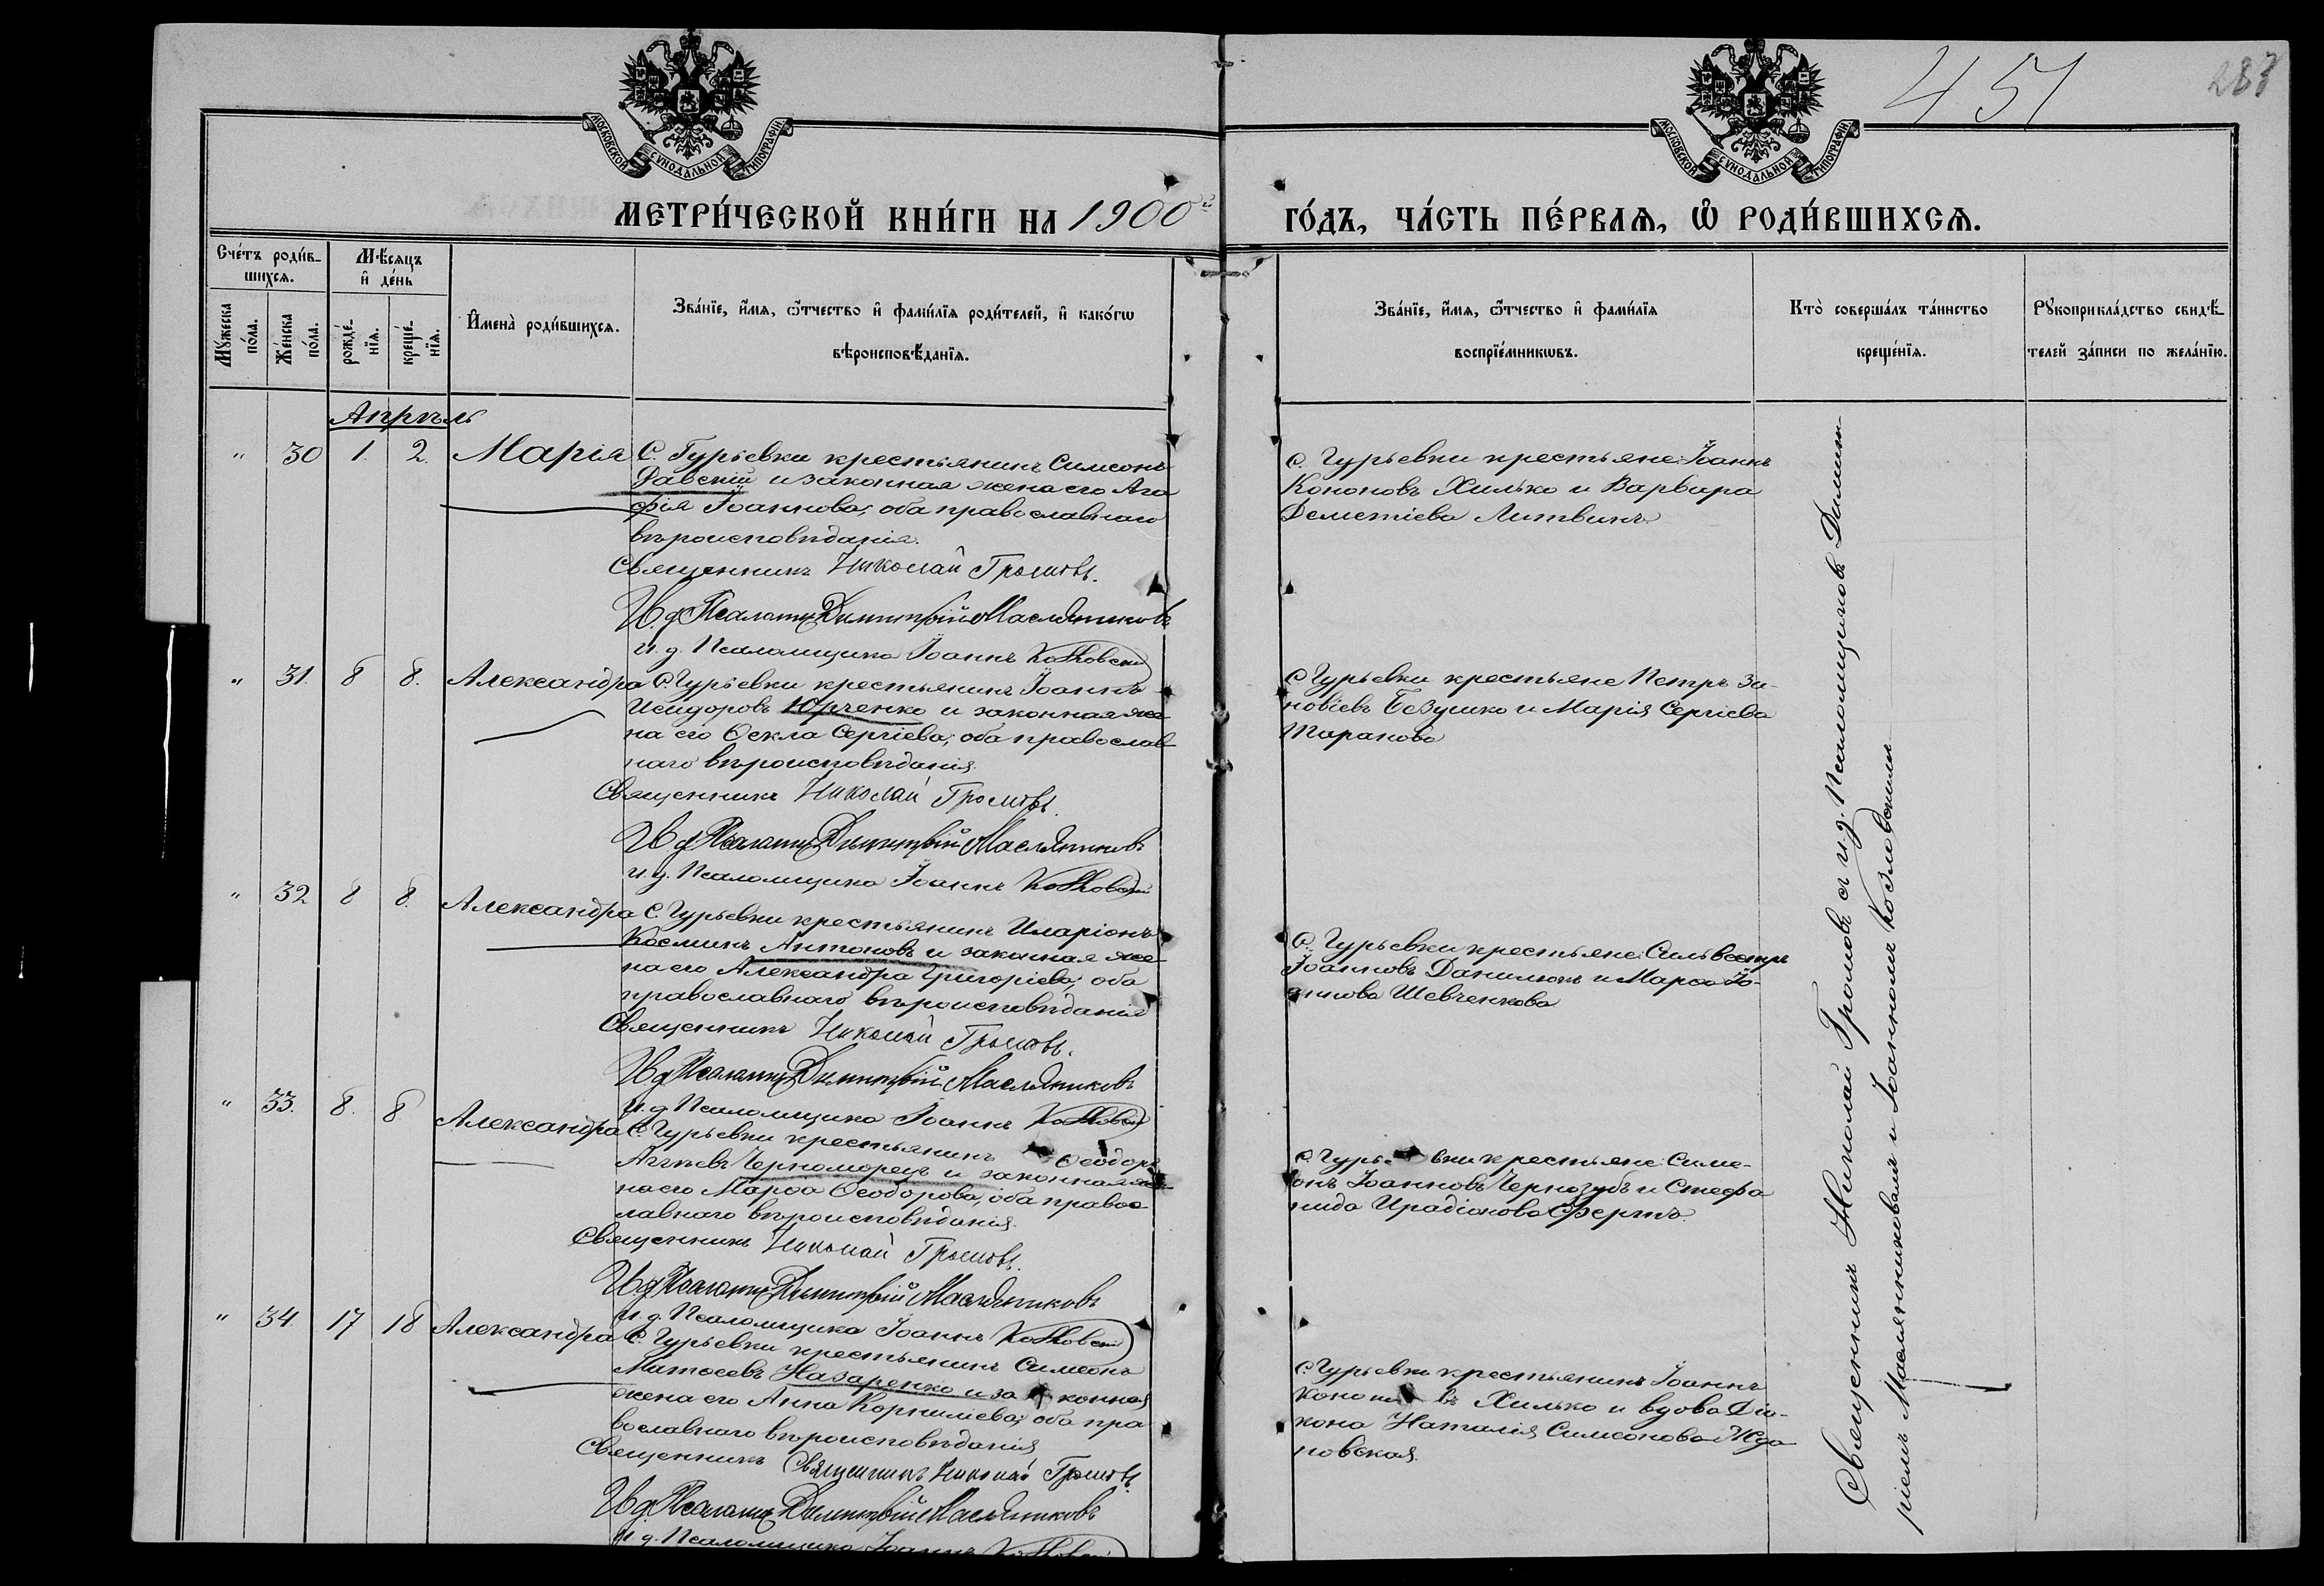 451
283
МОСКОВСКОЙ СѴНОДАЛЬНОЙ ТИПОГРАФІИ
МОСКОВСКОЙ СѴНОДАЛЬНОЙ ТИПОГРАФІИ
МЕТРИ́ЧЕСКОЙ КНИ́ГИ НА 1900й
ГО́ДЪ, ЧА́СТЬ ПЕ́РВАѦ, Ѡ҆ РОДИ́ВШИХСѦ.
Сче́тъ роди́в-
шихсѧ.
Мѣ́сяцъ
и҆ де́нь
Мꙋ́жеска
по́ла.
Же́нска
по́ла.
рожде́-
нїѧ.
креще́-
нїѧ.
И҆мена̀ роди́вшихсѧ.
Зва́нїе, и҆́мѧ, ѻ҆́тчество и҆ фами́лїѧ роди́телей, и҆ како́гѡ
вѣроисповѣ́данїѧ.
Зва́нїе, и҆́мѧ, ѻ҆́тчество и҆ фами́лїѧ
воспрїе́мникѡвъ.
Кто̀ соверша́лъ та́инство
креще́нїѧ.
Рꙋкоприкла́дство свидѣ́-
телей за́писи по жела́нїю.
Апрѣль
" 30 1 2. Марія
С. Гурьевки крестьянинъ Симеонъ
Равскій и законная жена его Ага
фія Іоаннова, оба православнаго
вѣроисповѣданія.
Священникъ Николай Громовъ.
И. д. Псаломщ. Димитрій Маслянниковъ
И. д. Псаломщика Іоаннъ Козловскій
С. Гурьевки крестьяне: Іоаннъ
Кононовъ Хилько и Варвара
Деметіева Литвинъ
" 31. 8 8. Александра
С. Гурьевки крестьянинъ Іоаннъ
Исидоровъ Юрченко и законная же-
на его Ѳекла Сергіева, оба православ
наго вѣроисповѣданія
Священникъ Николай Громовъ.
И. д. Псаломщ. Димитрій Маслянниковъ
И. д. Псаломщика Іоаннъ Козловскій
С. Гурьевки крестьяне Петръ Зи-
новіевъ Безушко и Марія Сергіева
Таранова
" 32 8 8. Александра
С. Гурьевки крестьянинъ Иларіонъ
Косминъ Антоновъ и законная же-
на его Александра Григоріева, оба
православнаго вѣроисповѣданія
Священникъ Николай Громовъ.
И. д. Псаломщ. Димитрій Маслянниковъ
И. д. Псаломщика Іоаннъ Козловскій
С. Гурьевки крестьяне: Сильвестръ
Іоанновъ Данилюкъ и Марѳа Іо-
аннова Шевченкова
" 33. 8. 8 Александра
С. Гурьевки крестьянинъ Ѳеодоръ
Черноморецъ и законная же-
на его Марѳа Ѳеодорова, оба правос
лавнаго вѣроисповѣданія.
Священникъ Николай Громовъ.
И. д. Псаломщ. Димитрій Маслянниковъ
И. д. Псаломщика Іоаннъ Козловскій
С. Гурьевки крестьяне: Симе-
онъ Іоанновъ Чернозубъ и Стефа
нида Иродіонова
" 34. 17 18 Александра
С. Гурьевки крестьянинъ Симеонъ
Матѳеевъ Назаренко и законная
жена его Анна Корниліева, оба пра
вославнаго вѣроисповѣданія
Священникъ Священникъ Николай Громовъ.
И. д. Псаломщ. Димитрій Маслянниковъ
И. д. Псаломщика Іоаннъ Козловскій
С. Гурьевки крестьянинъ Іоаннъ
Кононовъ Хилько и вдова Діа-
кона Наталія Симеонова Жда
новская.
Священникъ Николай Громовъ съ и. д. Псаломщиковъ Димит-
ріемъ Маслянниковымъ и Іоанномъ Козловскимъ